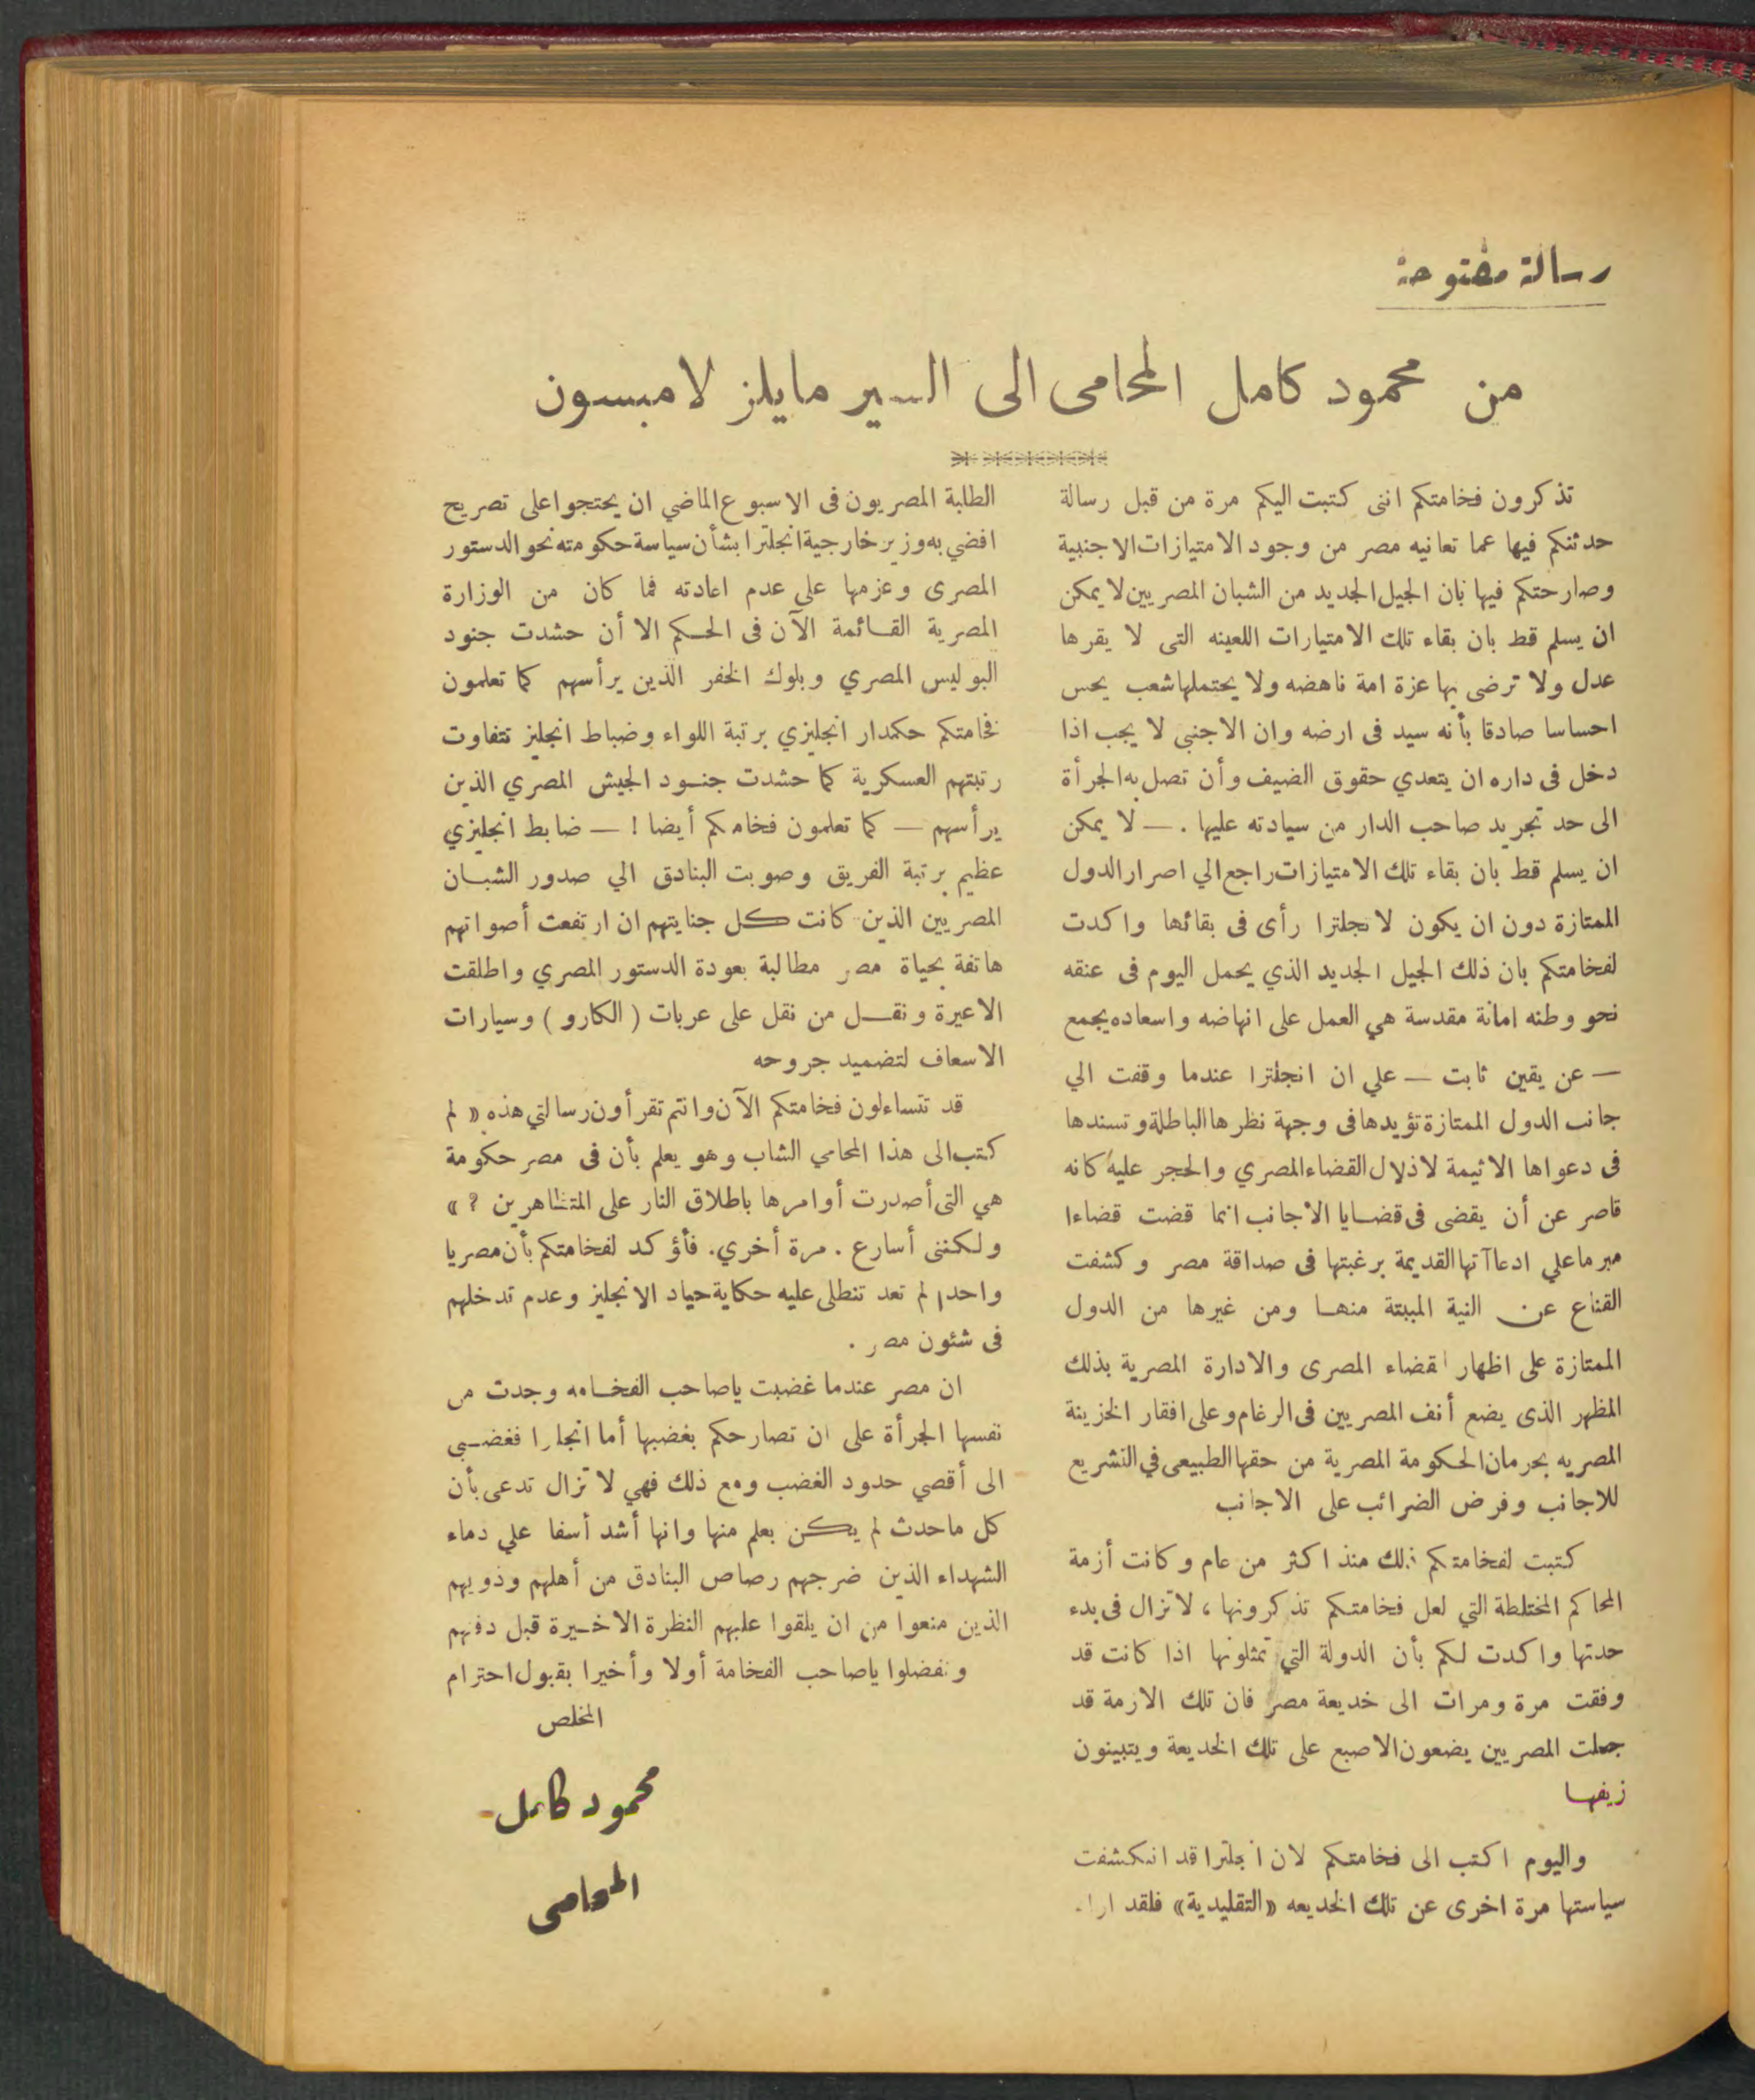 رسالة مفتوحة
من محمود كامل المحامى الى السير مايلز لامبسون
تذكرون فخامتكم اننى كتبت اليكم مرة من قبل رسالة
حدثتكم فيها عما تعانيه مصر من وجود الامتيازات الاجنبية
وصارحتكم فيها بان الجيل الجديد من الشبان المصريين لا يمكن
ان يسلم قط بان بقاء تلك الامتيارات اللعينه التى لا يقرها
عدل ولا ترضى بها عزة امة ناهضه ولا يحتملها شعب يحس
احساسا صادقا بأنه سيد فى ارضه وان الاجنبي لا يجب اذا
دخل فى داره ان يتعدي حقوق الضيف وأن تصل به الجرأة
الى حد تجريد صاحب الدار من سيادته عليها . — لا يمكن
ان يسلم قط بان بقاء تلك الامتيازات راجع الي اصرار الدول
الممتازة دون ان يكون لانجلترا رأى فى بقائها واكدت
لفخامتكم بان ذلك الجيل الجديد الذي يحمل اليوم فى عنقه
نحو وطنه امانة مقدسة هي العمل على انهاضه واسعاده يجمع
— عن يقين ثابت — علي ان انجلترا عندما وقفت الي
جانب الدول الممتازة تؤيدها فى وجهة نظرها الباطلة وتسندها
فى دعواها الاثيمة لاذلال القضاء المصري والحجر عليه كانه
قاصر عن أن يقضى فى قضايا الاجانب انما قضت قضاءا
مبرما علي ادعاآتها القديمة برغبتها فى صداقة مصر وكشفت
القناع عن النية المبيتة منها ومن غيرها من الدول
الممتازة على اظهار القضاء المصرى والادارة المصرية بذلك
المظهر الذى يضع أنف المصريين فى الرغام وعلى افقار الخزينة
المصريه بحرمان الحكومة المصرية من حقها الطبيعى في التشريع
للاجانب وفرض الضرائب على الاجانب
كتبت لفخامتكم ذلك منذ اكثر من عام وكانت أزمة
المحاكم المختلطة التي لعل فخامتكم تذكرونها ، لا تزال فى بدء
حدتها واكدت لكم بأن الدولة التي تمثلونها اذا كانت قد
وفقت مرة ومرات الى خديعة مصر فان تلك الازمة قد
جعلت المصريين يضعون الاصبع على تلك الخديعة ويتبينون
زيفها
واليوم اكتب الى فخامتكم لان انجلترا قد انكشفت
سياستها مرة اخرى عن تلك الخديعه «التقليدية» فلقد اراد
الطلبة المصريون فى الاسبوع الماضي ان يحتجوا على تصريح
افضي به وزير خارجية انجلترا بشأن سياسة حكومته نحو الدستور
المصرى وعزمها علي عدم اعادته فما كان من الوزارة
المصرية القائمة الآن فى الحكم الا أن حشدت جنود
البوليس المصري وبلوك الخفر الذين يرأسهم كما تعلمون
فخامتكم حكمدار انجليزي برتبة اللواء وضباط انجليز تتفاوت
رتبتهم العسكرية كما حشدت جنود الجيش المصري الذين
يرأسهم — كما تعلمون فخامكم أيضا ! — ضابط انجليزي
عظيم برتبة الفريق وصوبت البنادق الي صدور الشبان
المصريين الذين كانت كل جنايتهم ان ارتفعت أصواتهم
هاتفة بحياة مصر مطالبة بعودة الدستور المصري واطلقت
الاعيرة ونقل من نقل على عربات ( الكارو ) وسيارات
الاسعاف لتضميد جروحه
قد تتساءلون فخامتكم الآن وانتم تقرأون رسالتي هذه « لم
كتب الى هذا المحامي الشاب وهو يعلم بأن فى مصر حكومة
هي التى أصدرت أوامرها باطلاق النار على المتظاهرين ؟ »
ولكننى أسارع . مرة أخري . فأؤكد لفخامتكم بأن مصريا
واحدا لم تعد تنطلى عليه حكاية حياد الانجليز وعدم تدخلهم
فى شئون مصر .
ان مصر عندما غضبت ياصاحب الفخامه وجدت من
نفسها الجرأة على ان تصارحكم بغضبها أما انجلترا فغضبي
الى أقصي حدود الغضب ومع ذلك فهي لا تزال تدعى بأن
كل ماحدث لم يكن بعلم منها وانها أشد أسفا علي دماء
الشهداء الذين ضرجهم رصاص البنادق من أهلهم وذويهم
الذين منعوا من ان يلقوا عليهم النظرة الاخيرة قبل دفنهم
وتفضلوا ياصاحب الفخامة أولا وأخيرا بقبول احترام
المخلص
محمود كامل
المحامى